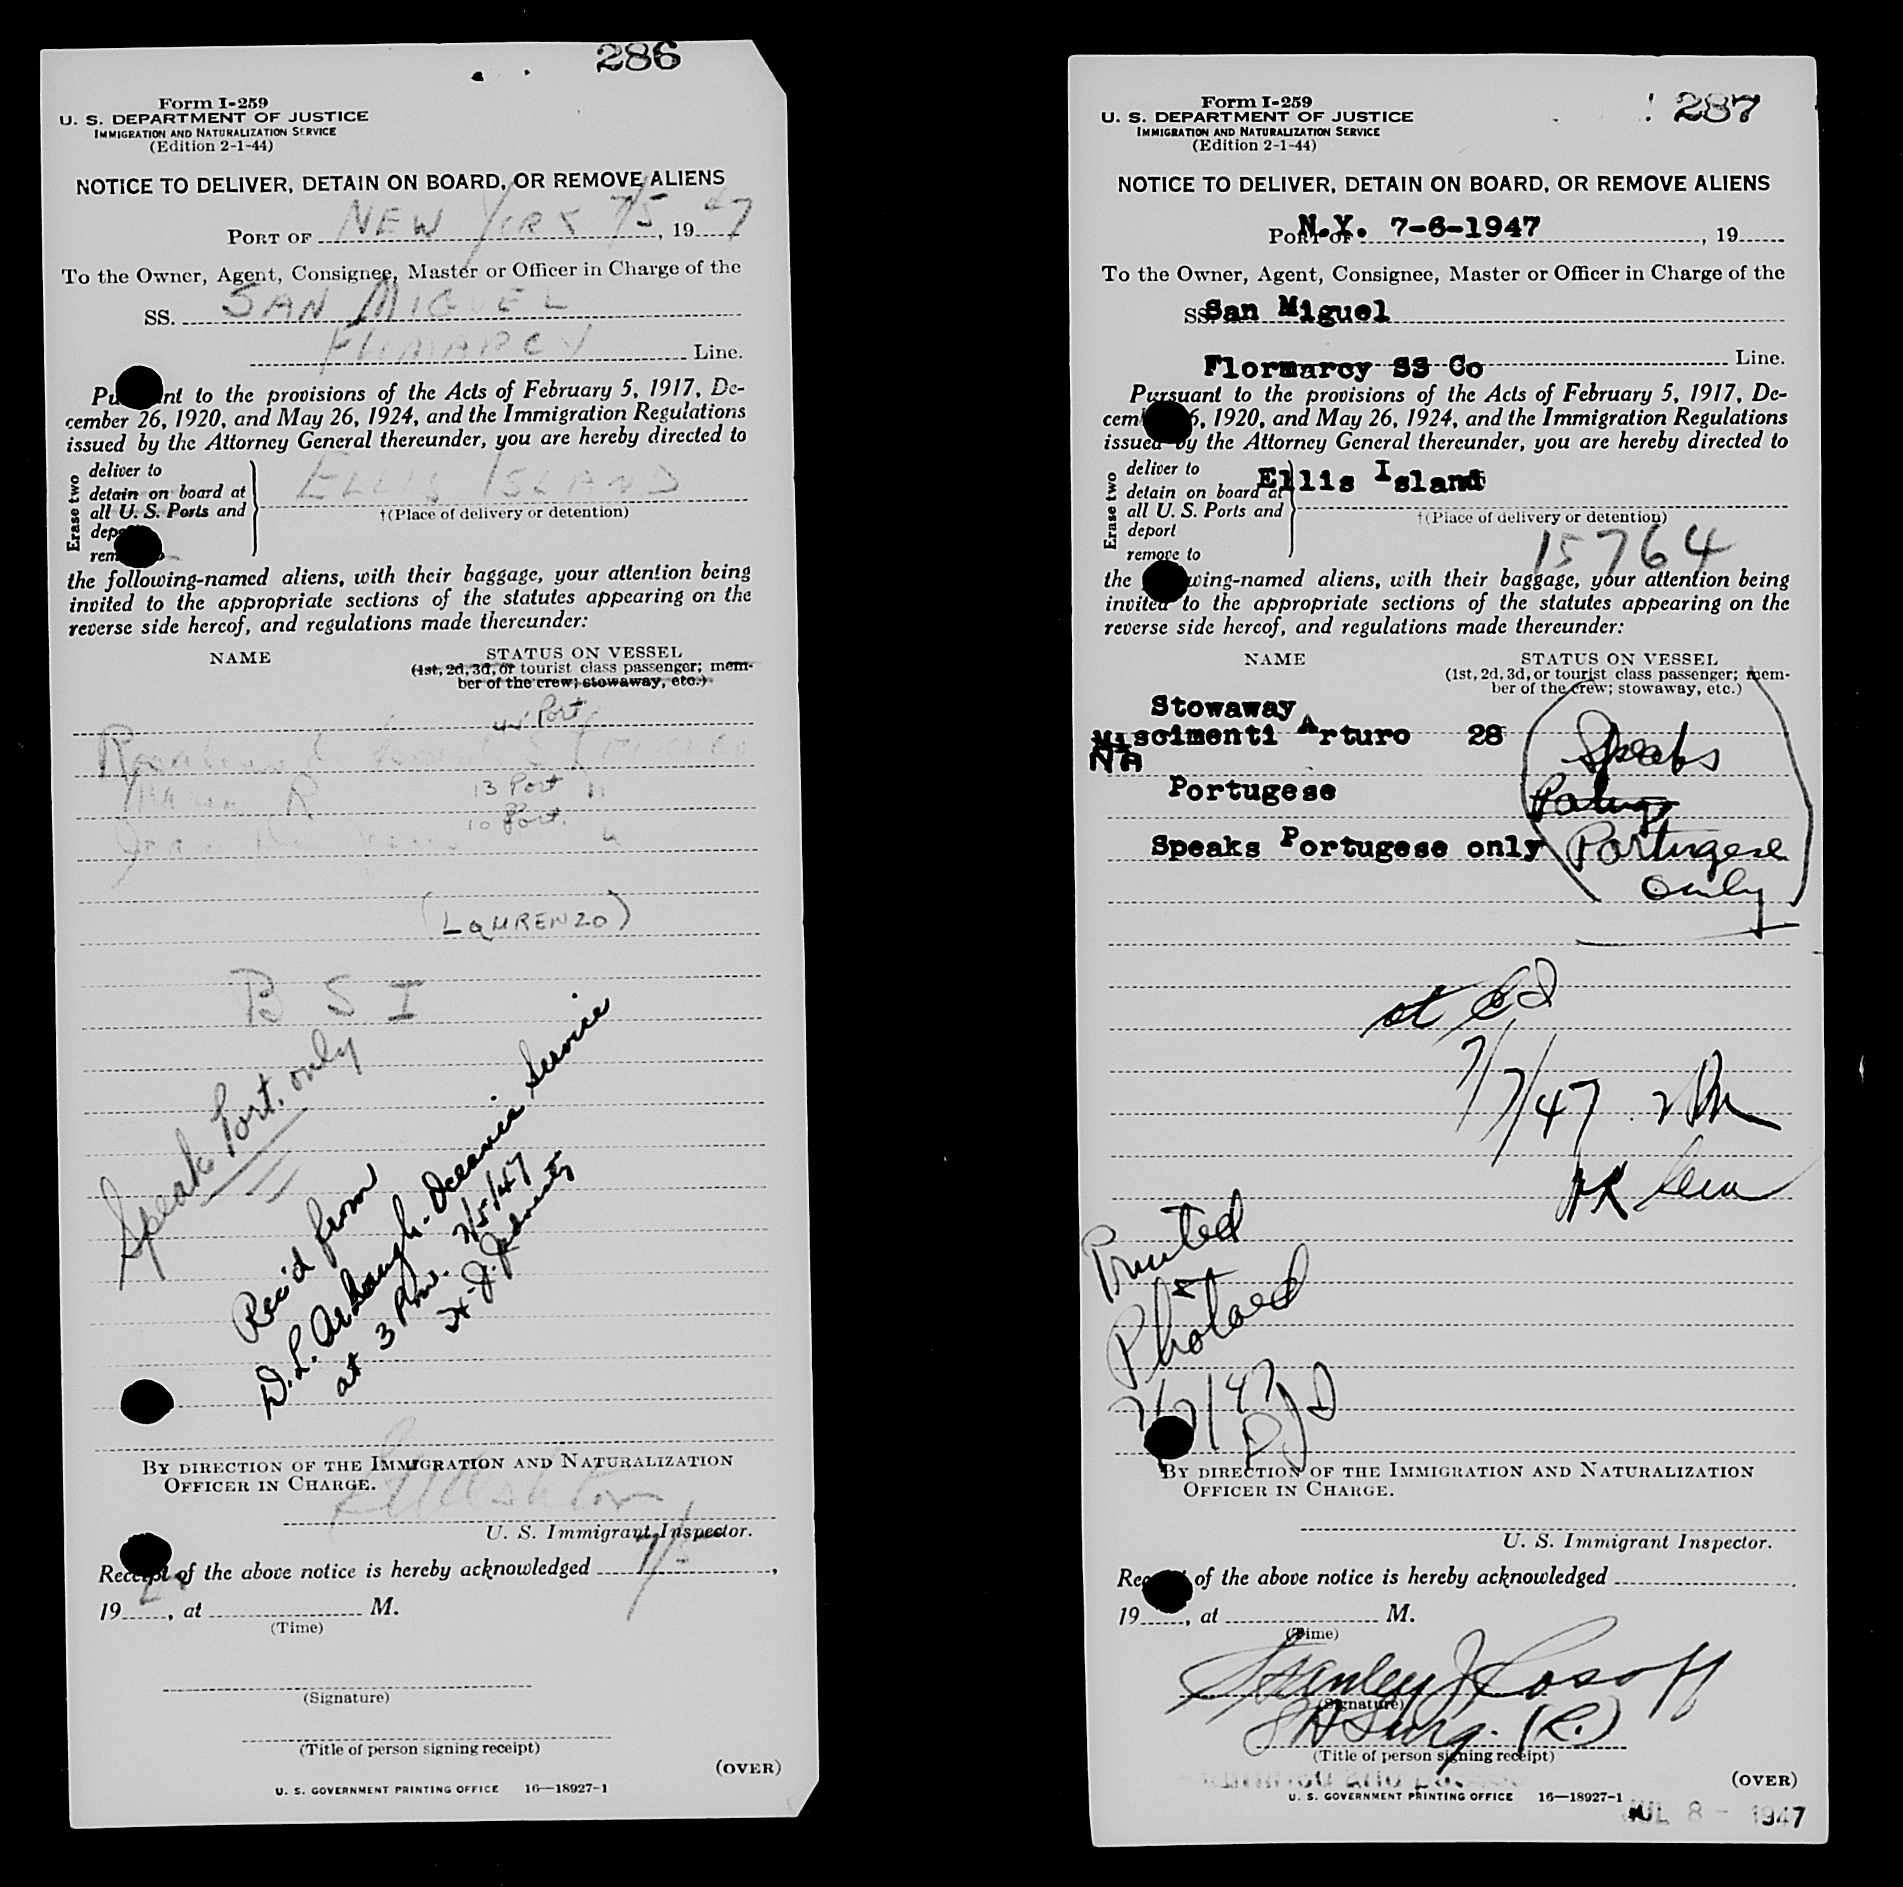 286
Form I-259
U. S. DEPARTMENT OF JUSTICE
IMMIGRATION AND NATURALIZATION SERVICE
(Edition 2-1-44)
NOTICE TO DELIVER, DETAIN ON BOARD, OR REMOVE ALIENS
PORT OF NEW YORK 7/5, 1947
To the Owner, Agent, Consignee, Master or Officer in Charge of the
SS. SAN MIGUEL
Line.
nt to the provisions of the Acts of February 5, 1917, De-
cember 26, 1920, and May 26, 1924, and the Immigration Regulations
issued by the Attorney General thereunder, you are hereby directed to
Erase two
deliver to
detain on board at
all U. S. Ports and
ELLIS ISLAND
†(Place of delivery or detention)
the following-named aliens, with their baggage, your attention being
invited to the appropriate sections of the statutes appearing on the
reverse side hereof, and regulations made thereunder:
NAME STATUS ON VESSEL
(1st, 2d, 3d, or tourist class passenger; mem-
ber of the crew; stowaway, etc.)
Port
13 Port "
10 Port.
(LAURENZO)
B S I
Speak Port. only
Rec'd from
D.L. Oceanic Service
at 3 PM. 7/5/47
BY DIRECTION OF THE IMMIGRATION AND NATURALIZATION
OFFICER IN CHARGE.
U. S. Immigrant Inspector.
Receipt of the above notice is hereby acknowledged 7/5,
19, at M.
(Time)
(Signature)
(Title of person signing receipt)
(OVER)
U. S. GOVERNMENT PRINTING OFFICE 16—18927-1
287
Form I-259
U. S. DEPARTMENT OF JUSTICE
IMMIGRATION AND NATURALIZATION SERVICE
(Edition 2-1-44)
NOTICE TO DELIVER, DETAIN ON BOARD, OR REMOVE ALIENS
PORT OF N.Y. 7-6-1947, 19
To the Owner, Agent, Consignee, Master or Officer in Charge of the
SS. San Miguel
Flormarcy SS Co Line.
Pursuant to the provisions of the Acts of February 5, 1917, De-
6, 1920, and May 26, 1924, and the Immigration Regulations
issued by the Attorney General thereunder, you are hereby directed to
Erase two
deliver to
detain on board at
all U. S. Ports and
deport
remove to
Ellis Island
†(Place of delivery or detention)
15764
the wing-named aliens, with their baggage, your attention being
invited to the appropriate sections of the statutes appearing on the
reverse side hereof, and regulations made thereunder:
NAME STATUS ON VESSEL
(1st, 2d, 3d, or tourist class passenger; mem-
ber of the crew; stowaway, etc.)
Stowaway
Miscimenti Arturo 28
NA
Portugese
Speaks Portugese only
Speaks
Portugese
only
at
7/7/47
Printed
&
Photoed
7/7/47
BY DIRECTION OF THE IMMIGRATION AND NATURALIZATION
OFFICER IN CHARGE.
U. S. Immigrant Inspector.
Receipt of the above notice is hereby acknowledged
19, at M.
(Time)
Stanley J Rosoff
(Signature)
Surg. (R.)
(Title of person signing receipt)
(OVER)
U. S. GOVERNMENT PRINTING OFFICE 16—18927-1
JUL 8 - 1947